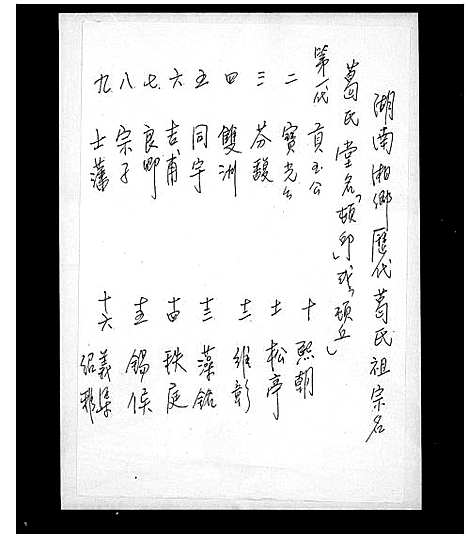 湖南湘鄉歷代葛氏祖宗名
葛氏堂名「頓印」或「頓丘」
第一代 貢玉公
二 寶光公
三 芬馥
四 雙洲
五 同宇
六 吉甫
七 良卿
八 宗子
九 士藩
十 熙朝
十一 松亭
十二 維彰
十三 藻銘
十四 秩庭
十五 錫侯
十六 義渠
紹